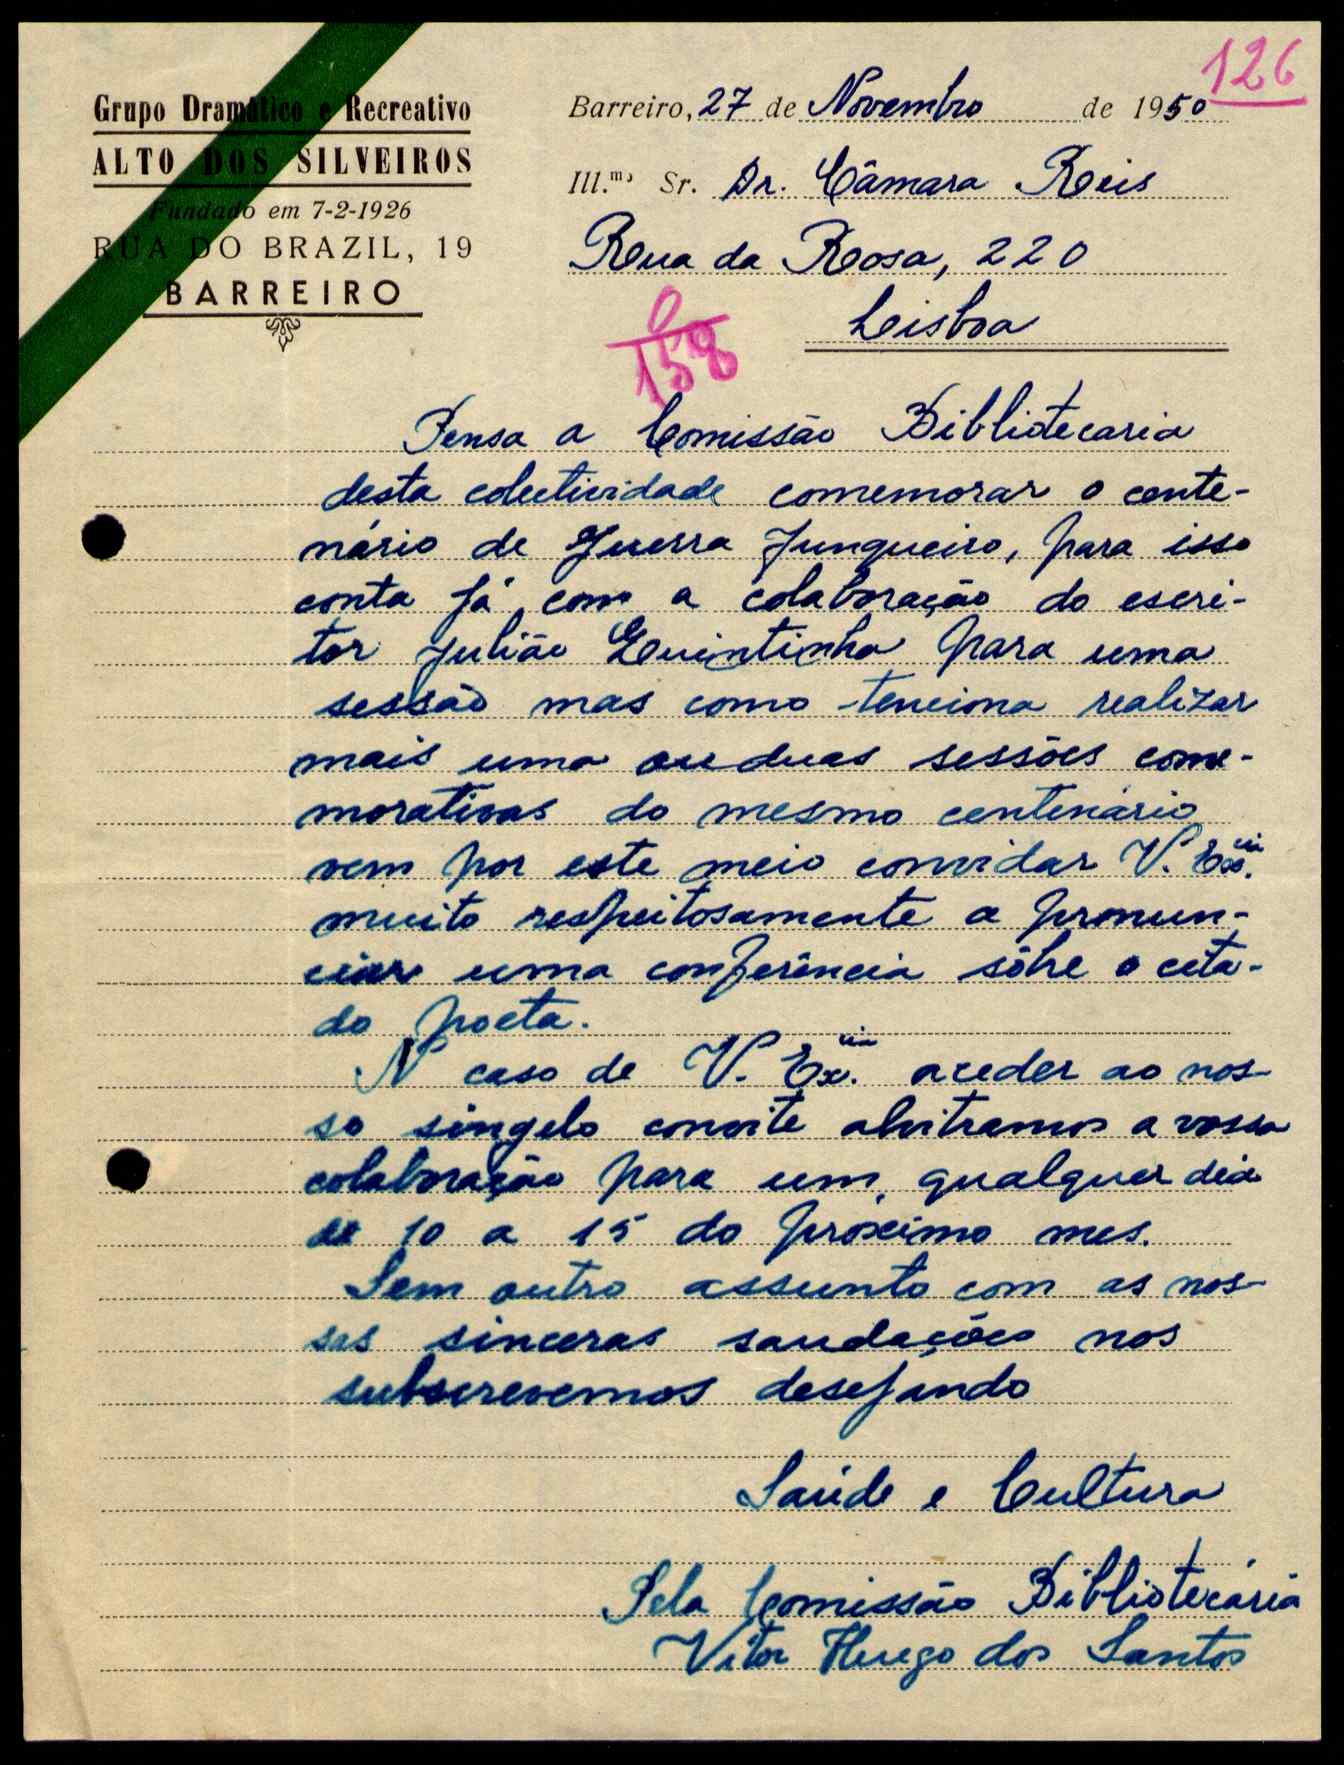 126
Grupo Dramático e Recreativo
ALTO DOS SILVEIROS
Fundado em 7-2-1926
RUA DO BRAZIL, 19
BARREIRO
Barreiro, 27 de Novembro de 1950
Ill.mo Sr. Dr. Câmara Reis
Rua da Rosa, 220
Lisboa
158
Pensa a Comissão Bibliotecaria
desta colectividade comemorar o cente-
nário de Guerra Junqueiro, para isso
conta já com a colaboração do escri-
tor Julião Quintinha para uma
sessão mas como tenciona realizar
mais uma ou duas sessões come-
morativas do mesmo centenário
vem por este meio convidar V. Ex.cia
muito respeitosamente a pronun-
ciar uma conferência sôbre o cita-
do poeta.
N caso de V. Ex.cia aceder ao nos-
so singelo convite alvitramos a vossa
colaboração para um qualquer dia
de 10 a 15 do próximo mes.
Sem outro assunto com as nos-
sas sinceras saudações nos
subscrevemos desejando
Saúde e Cultura
Pela Comissão Bibliotecária
Vitor Hugo dos Santos